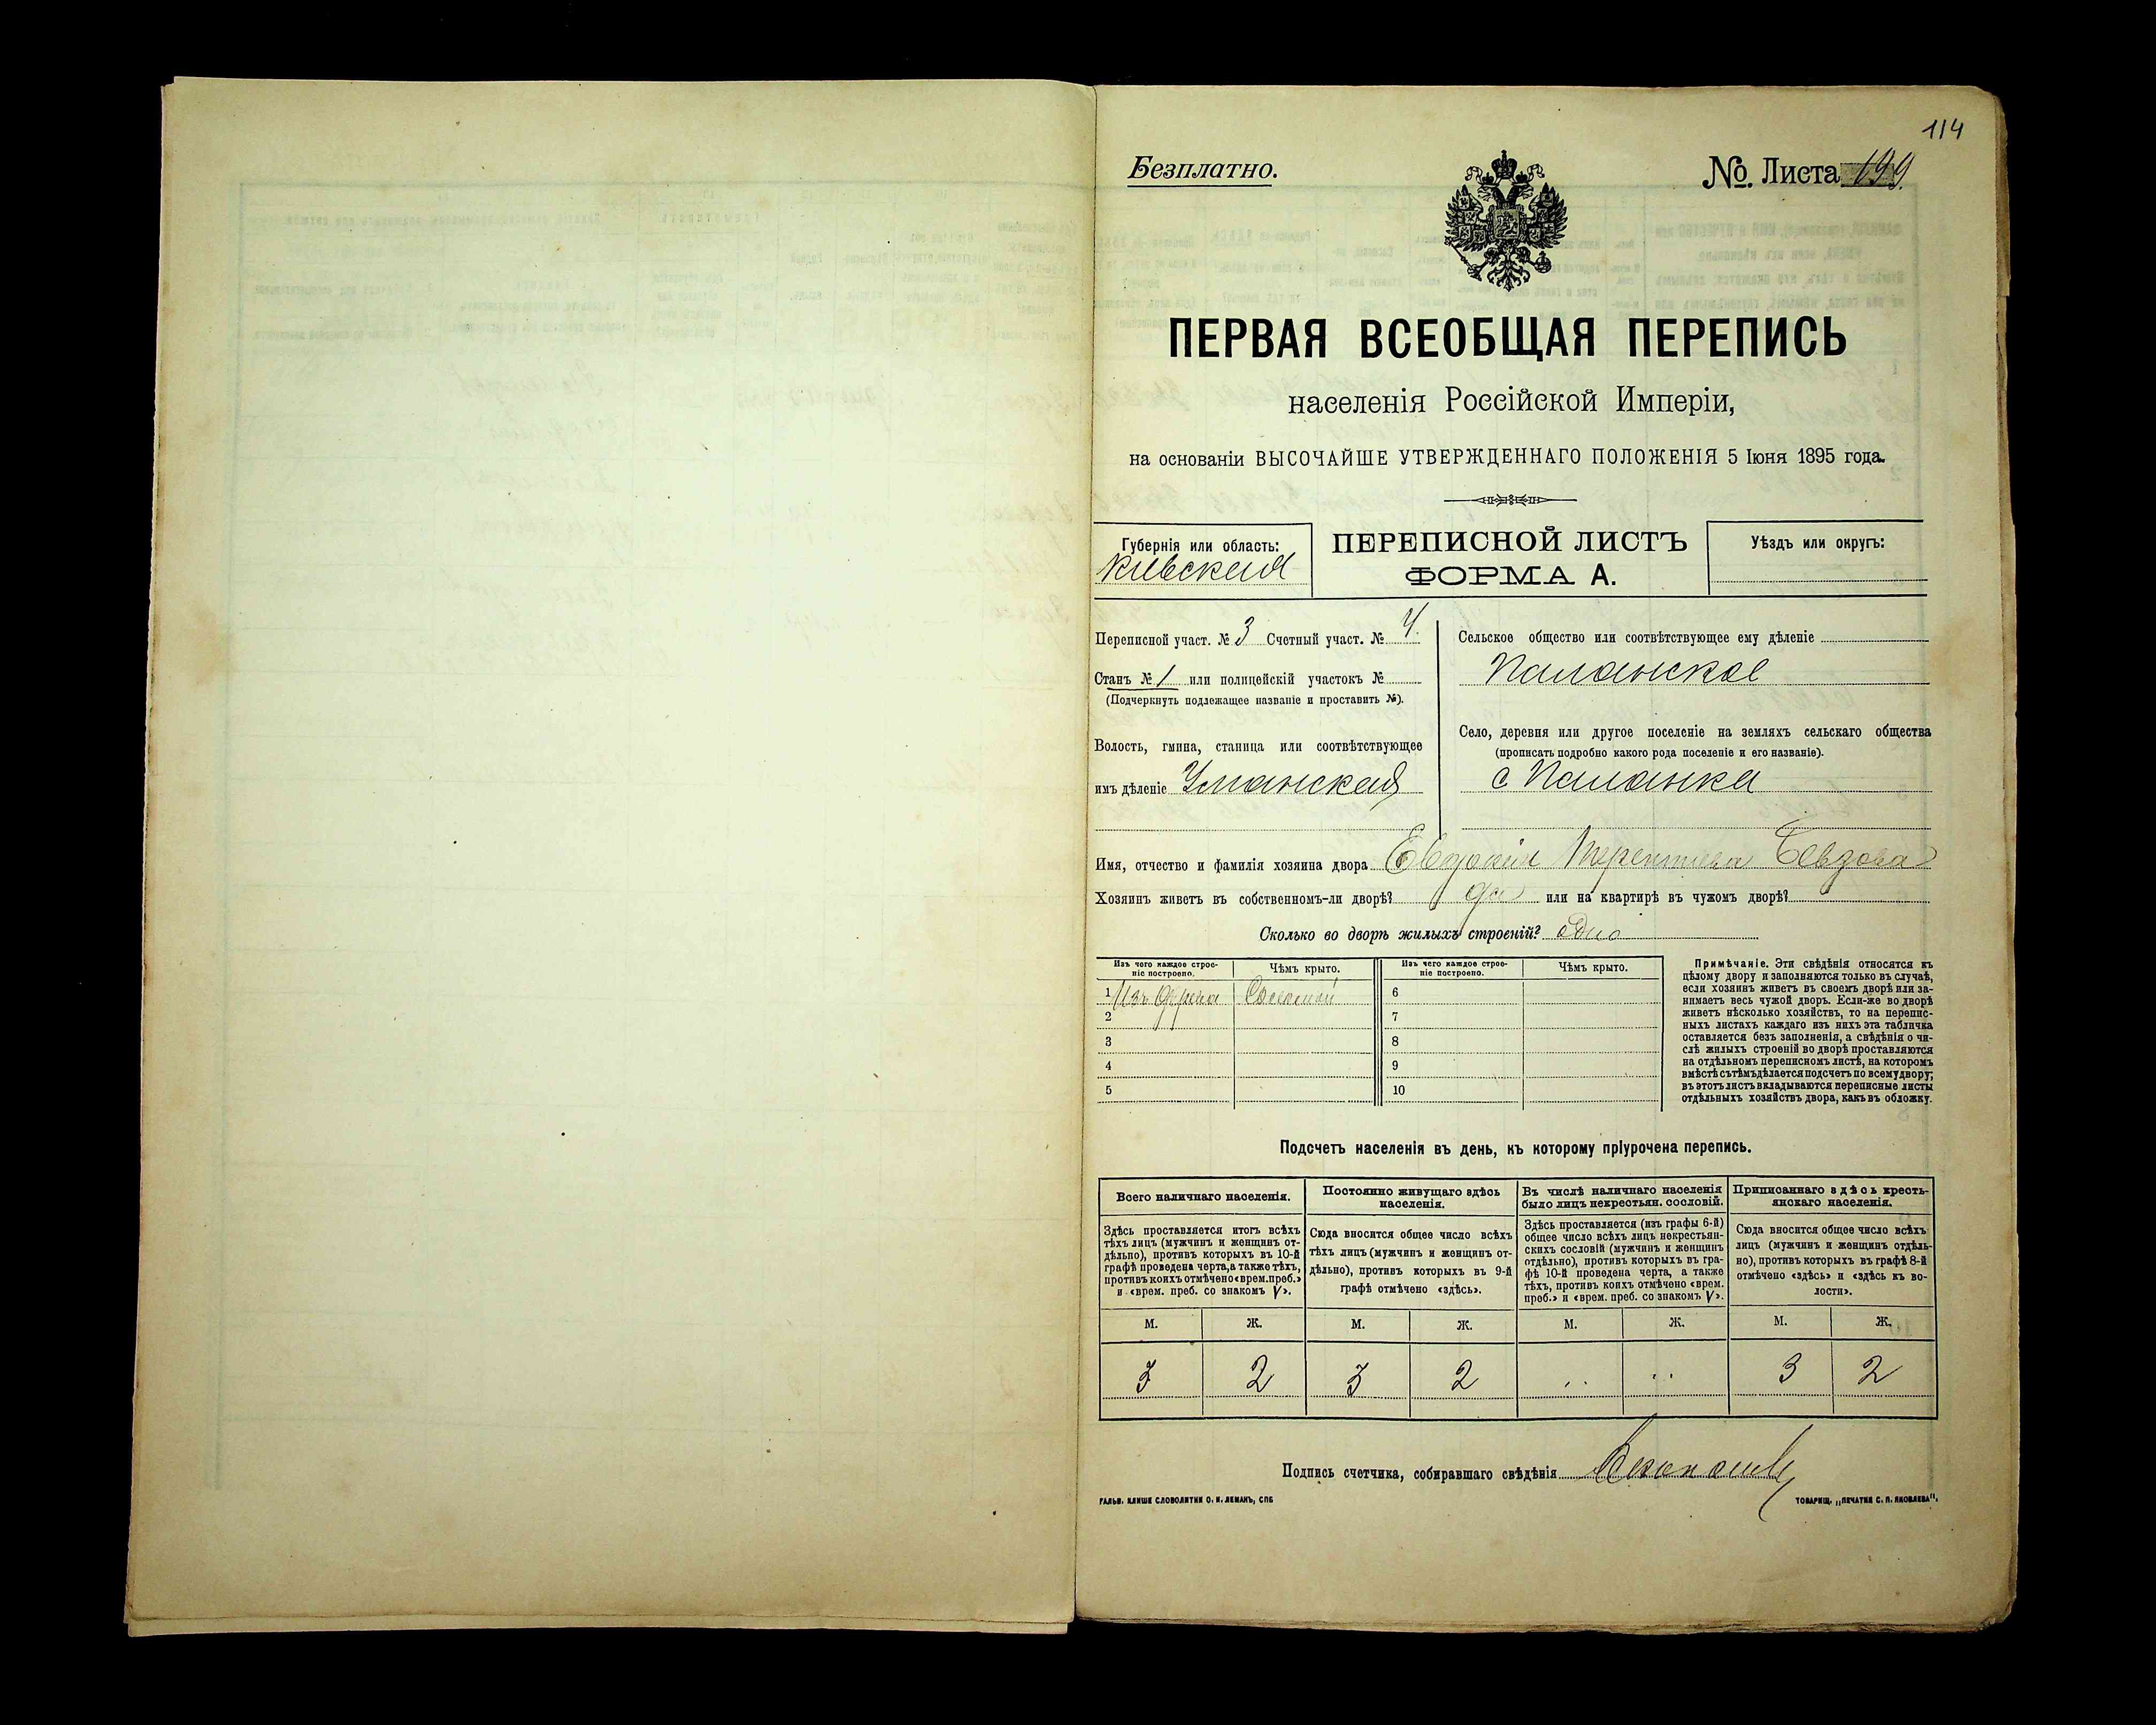 114
Безплатно.
№ Листа 199
ПЕРВАЯ ВСЕОБЩАЯ ПЕРЕПИСЬ
населенія Россійской Имперіи,
на основаніи ВЫСОЧАЙШЕ УТВЕРЖДЕННАГО ПОЛОЖЕНІЯ 5 Іюня 1895 года.
Губернія или область:
Кіевская
ПЕРЕПИСНОЙ ЛИСТЪ
ФОРМА А.
Уѣздъ или округъ:
Переписной участ. № 3 Счетный участ. № 4.
Станъ № 1 или полицейскій участокъ №
(Подчеркнуть подлежащее названіе и проставить №).
Волость, гмина, станица или соотвѣтствующее
имъ дѣленіе Уманская
Сельское общество или соотвѣтствующее ему дѣленіе
Паланское
Село, деревня или другое поселеніе на земляхъ сельскаго общества
(прописать подробно какого рода поселеніе и его названіе).
с. Паланка
Имя, отчество и фамилія хозяина двора Евдокія Терентіева
Хозяинъ живетъ въ собственномъ-ли дворѣ? да или на квартирѣ въ чужомъ дворѣ?
Сколько во дворѣ жилыхъ строеній? одно
Изъ чего каждое строе-
ніе построено.
Чѣмъ крыто.
Изъ чего каждое строе-
ніе построено.
Чѣмъ крыто.
1 Изъ дерева Соломой 6
2 7
3 8
4 9
5 10
Примѣчаніе. Эти свѣдѣнія относятся къ
цѣлому двору и заполняются только въ случаѣ,
если хозяинъ живетъ въ своемъ дворѣ или за-
нимаетъ весь чужой дворъ. Если-же во дворѣ
живетъ нѣсколько хозяйствъ, то на перепис-
ныхъ листахъ каждаго изъ нихъ эта табличка
оставляется безъ заполненія, а свѣдѣнія о чи-
слѣ жилыхъ строеній во дворѣ проставляются
на отдѣльномъ переписномъ листѣ, на которомъ
вмѣстѣ съ тѣмъ дѣлается подсчетъ по всему двору;
въ этотъ листъ вкладываются переписные листы
отдѣльныхъ хозяйствъ двора, какъ въ обложку.
Подсчетъ населенія въ день, къ которому пріурочена перепись.
Всего наличнаго населенія.
Здѣсь проставляется итогъ всѣхъ
тѣхъ лицъ (мужчинъ и женщинъ от-
дѣльно), противъ которыхъ въ 10-й
графѣ проведена черта, а также тѣхъ,
противъ коихъ отмѣчено «врем. преб.»
и «врем. преб. со знакомъ V».
Постоянно живущаго здѣсь
населенія.
Сюда вносится общее число всѣхъ
тѣхъ лицъ (мужчинъ и женщинъ от-
дѣльно), противъ которыхъ въ 9-й
графѣ отмѣчено «здѣсь».
Въ числѣ наличнаго населенія
было лицъ некрестьян. сословій.
Здѣсь проставляется (изъ графы 6-й)
общее число всѣхъ лицъ некрестьян-
скихъ сословій (мужчинъ и женщинъ
отдѣльно), противъ которыхъ въ гра-
фѣ 10-й проведена черта, а также
тѣхъ, противъ коихъ отмѣчено «врем.
преб.» и «врем. преб. со знакомъ V».
Приписаннаго здѣсь кресть-
янскаго населенія.
Сюда вносится общее число всѣхъ
лицъ (мужчинъ и женщинъ отдѣль-
но), противъ которыхъ въ графѣ 8-й
отмѣчено «здѣсь» и «здѣсь къ во-
лости».
М. Ж. М. Ж. М. Ж. М. Ж.
3 2 3 2 .. .. 3 2
Подпись счетчика, собиравшаго свѣдѣнія
ГАЛЬВ. КЛИШЕ СЛОВОЛИТНИ О. И. ЛЕМАНЪ, СПБ
ТОВАРИЩ. „ПЕЧАТНЯ С. П. ЯКОВЛЕВА".